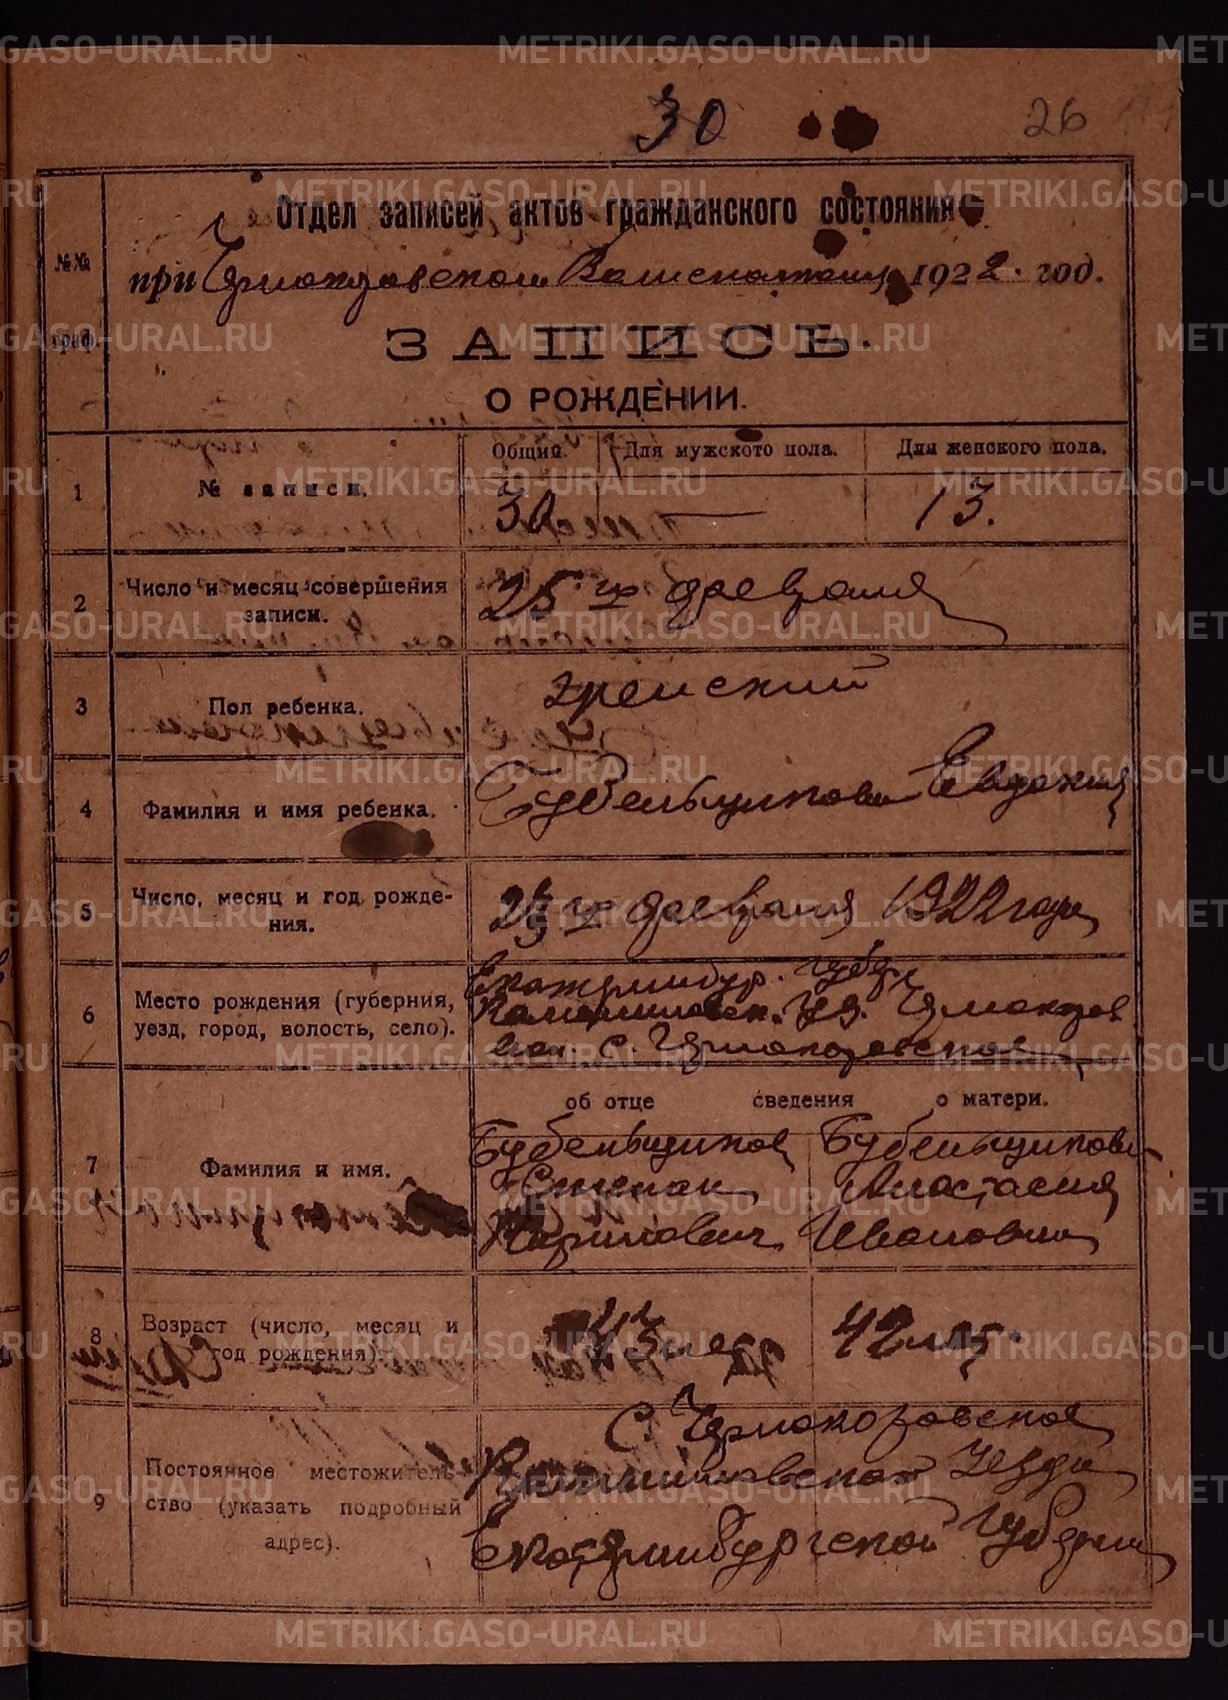 METRIKI.GASO-URAL.RU
30
26
Отдел записей актов гражданского состояния
при Чемокоровском Волисполкоме 1922 год.
№№ граф.
ЗАПИСЬ
О РОЖДЕНИИ.
Общий. Для мужского пола. Для женского пола.
1 № записи. 30 — 13.
2 Число и месяц совершения записи. 25 го февраля
3 Пол ребенка. женский
4 Фамилия и имя ребенка. Бубенщикова Евдокия
5 Число, месяц и год рождения. февраля 1922 года
6 Место рождения (губерния, уезд, город, волость, село).
Екатеринбур. губер.
Камышловск. уез.
вол. с.
об отце сведения о матери.
7 Фамилия и имя.
Бубенщиков Бубенщикова
Степан Анастасия
Кирилович Ивановна
8 Возраст (число, месяц и год рождения). 43 лет 42 лет.
9 Постоянное местожительство (указать подробный адрес).
с.
Камышловского Уезда
Екатеринбургской Губернии